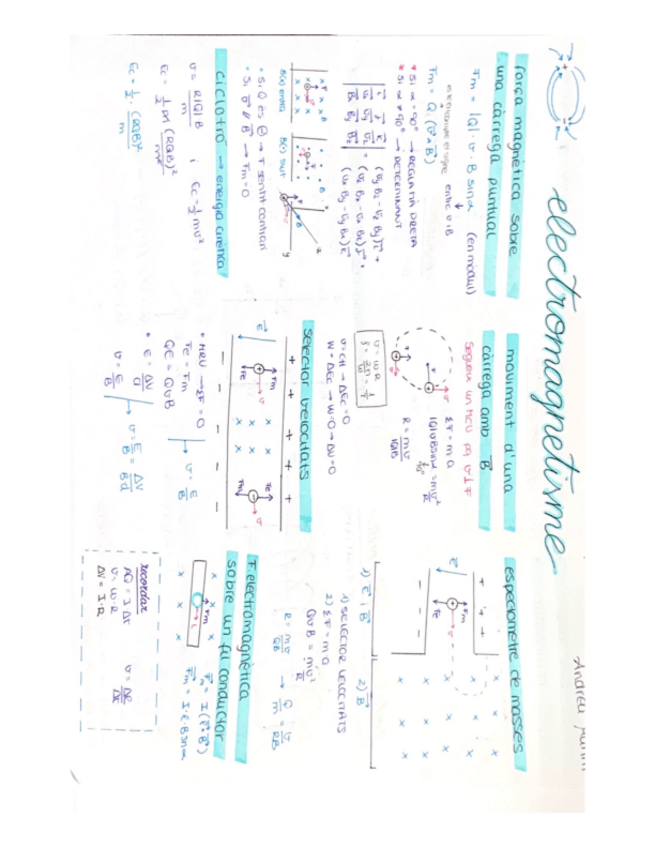 electromagnetisme
Andreu
força magnètica sobre
una càrrega puntual
Fm = |Q| · v · B sinα (en mòdul)
entre v i B
Fm = Q · (v ∧ B)
* Si α = 90° → REGLA MÀ DRETA
* Si α ≠ 90° → DETERMINANT
i j k
vx vy vz
Bx By Bz
= (vy Bz - vz By) i +
(vz Bx - vx Bz) j +
(vx By - vy Bx) k
B(x) entra
B(·) surt
• Si Q és ⊖ → F sentit contrari
• Si v ∥ B → Fm = 0
ciclotró → energia cinètica
v = R|Q|B / m i Ec = ½ mv²
Ec = ½ m (RQB)² / m²
Ec = ½ · (RQB)² / m
moviment d'una
càrrega amb B
segueix un MCU pq v ⊥ F
ΣF = m a
|Q| v B sin α = m v² / R
90°
R = m v / |Q| B
v = ω R
v = ct → ΔEc = 0
W = ΔEc → W = 0 → ΔU = 0
selector velocitats
+ + + + + +
E
Fm
v
Fe
- - - - - -
• MRU → ΣF = 0
Fe = Fm
QE = QvB
v = E / B
• E = ΔV / d
v = E / B
v = E / B = ΔV / B d
espectòmetre de masses
+ + +
E
Fm
v
Fe
- - -
1) E i B
2) B
1) SELECTOR VELOCITATS
2) ΣF = m a
QvB = m v² / R
R = m v / Q B → Q / m = v / R B
F. electromagnètica
sobre un fil conductor
Fm = I (l ∧ B)
Fm = I · l · B sin α
recordar
ΔQ = I Δt
v = ω · R
ΔV = I · R